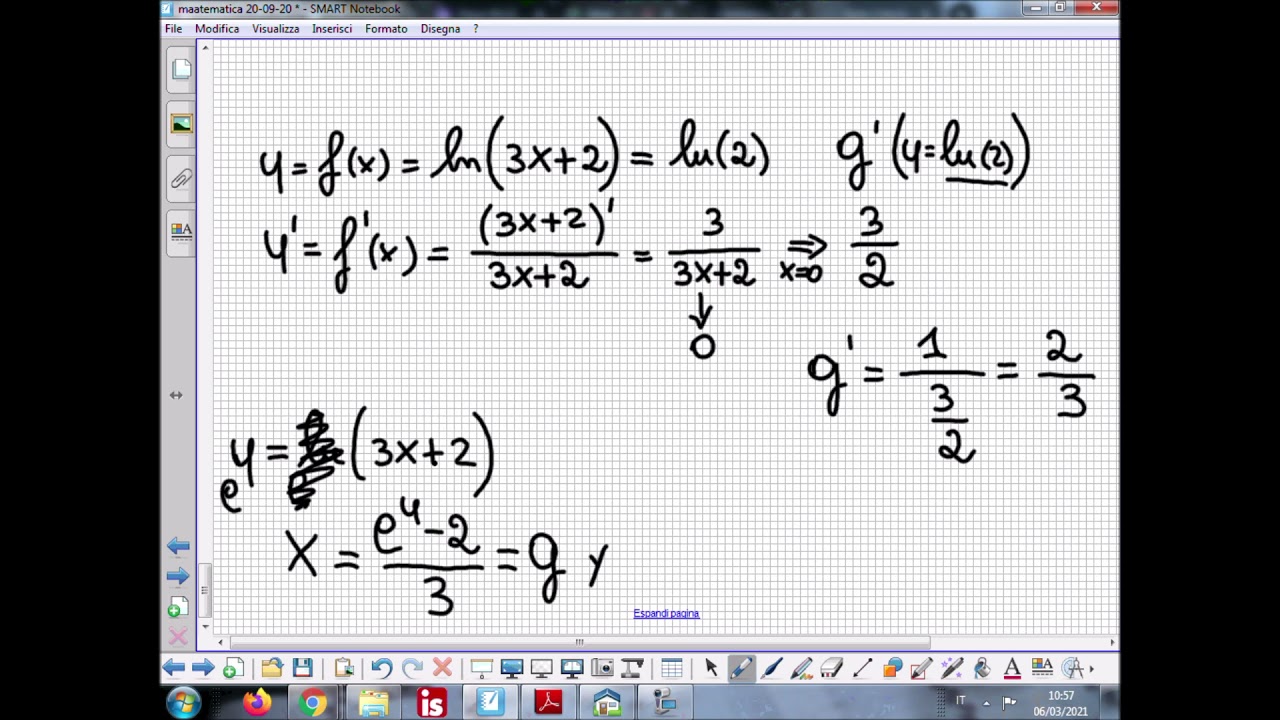 maatematica 20-09-20 * - SMART Notebook
File Modifica Visualizza Inserisci Formato Disegna ?
y = f(x) = ln(3x+2) = ln(2) g'(y=ln(2))
y' = f'(x) = (3x+2)' / 3x+2 = 3 / 3x+2 ⇒ x=0 3/2
↓
0
g' = 1 / 3/2 = 2/3
e^y = (3x+2)
x = e^y - 2 / 3 = g y
Espandi pagina
IT 10:57
06/03/2021